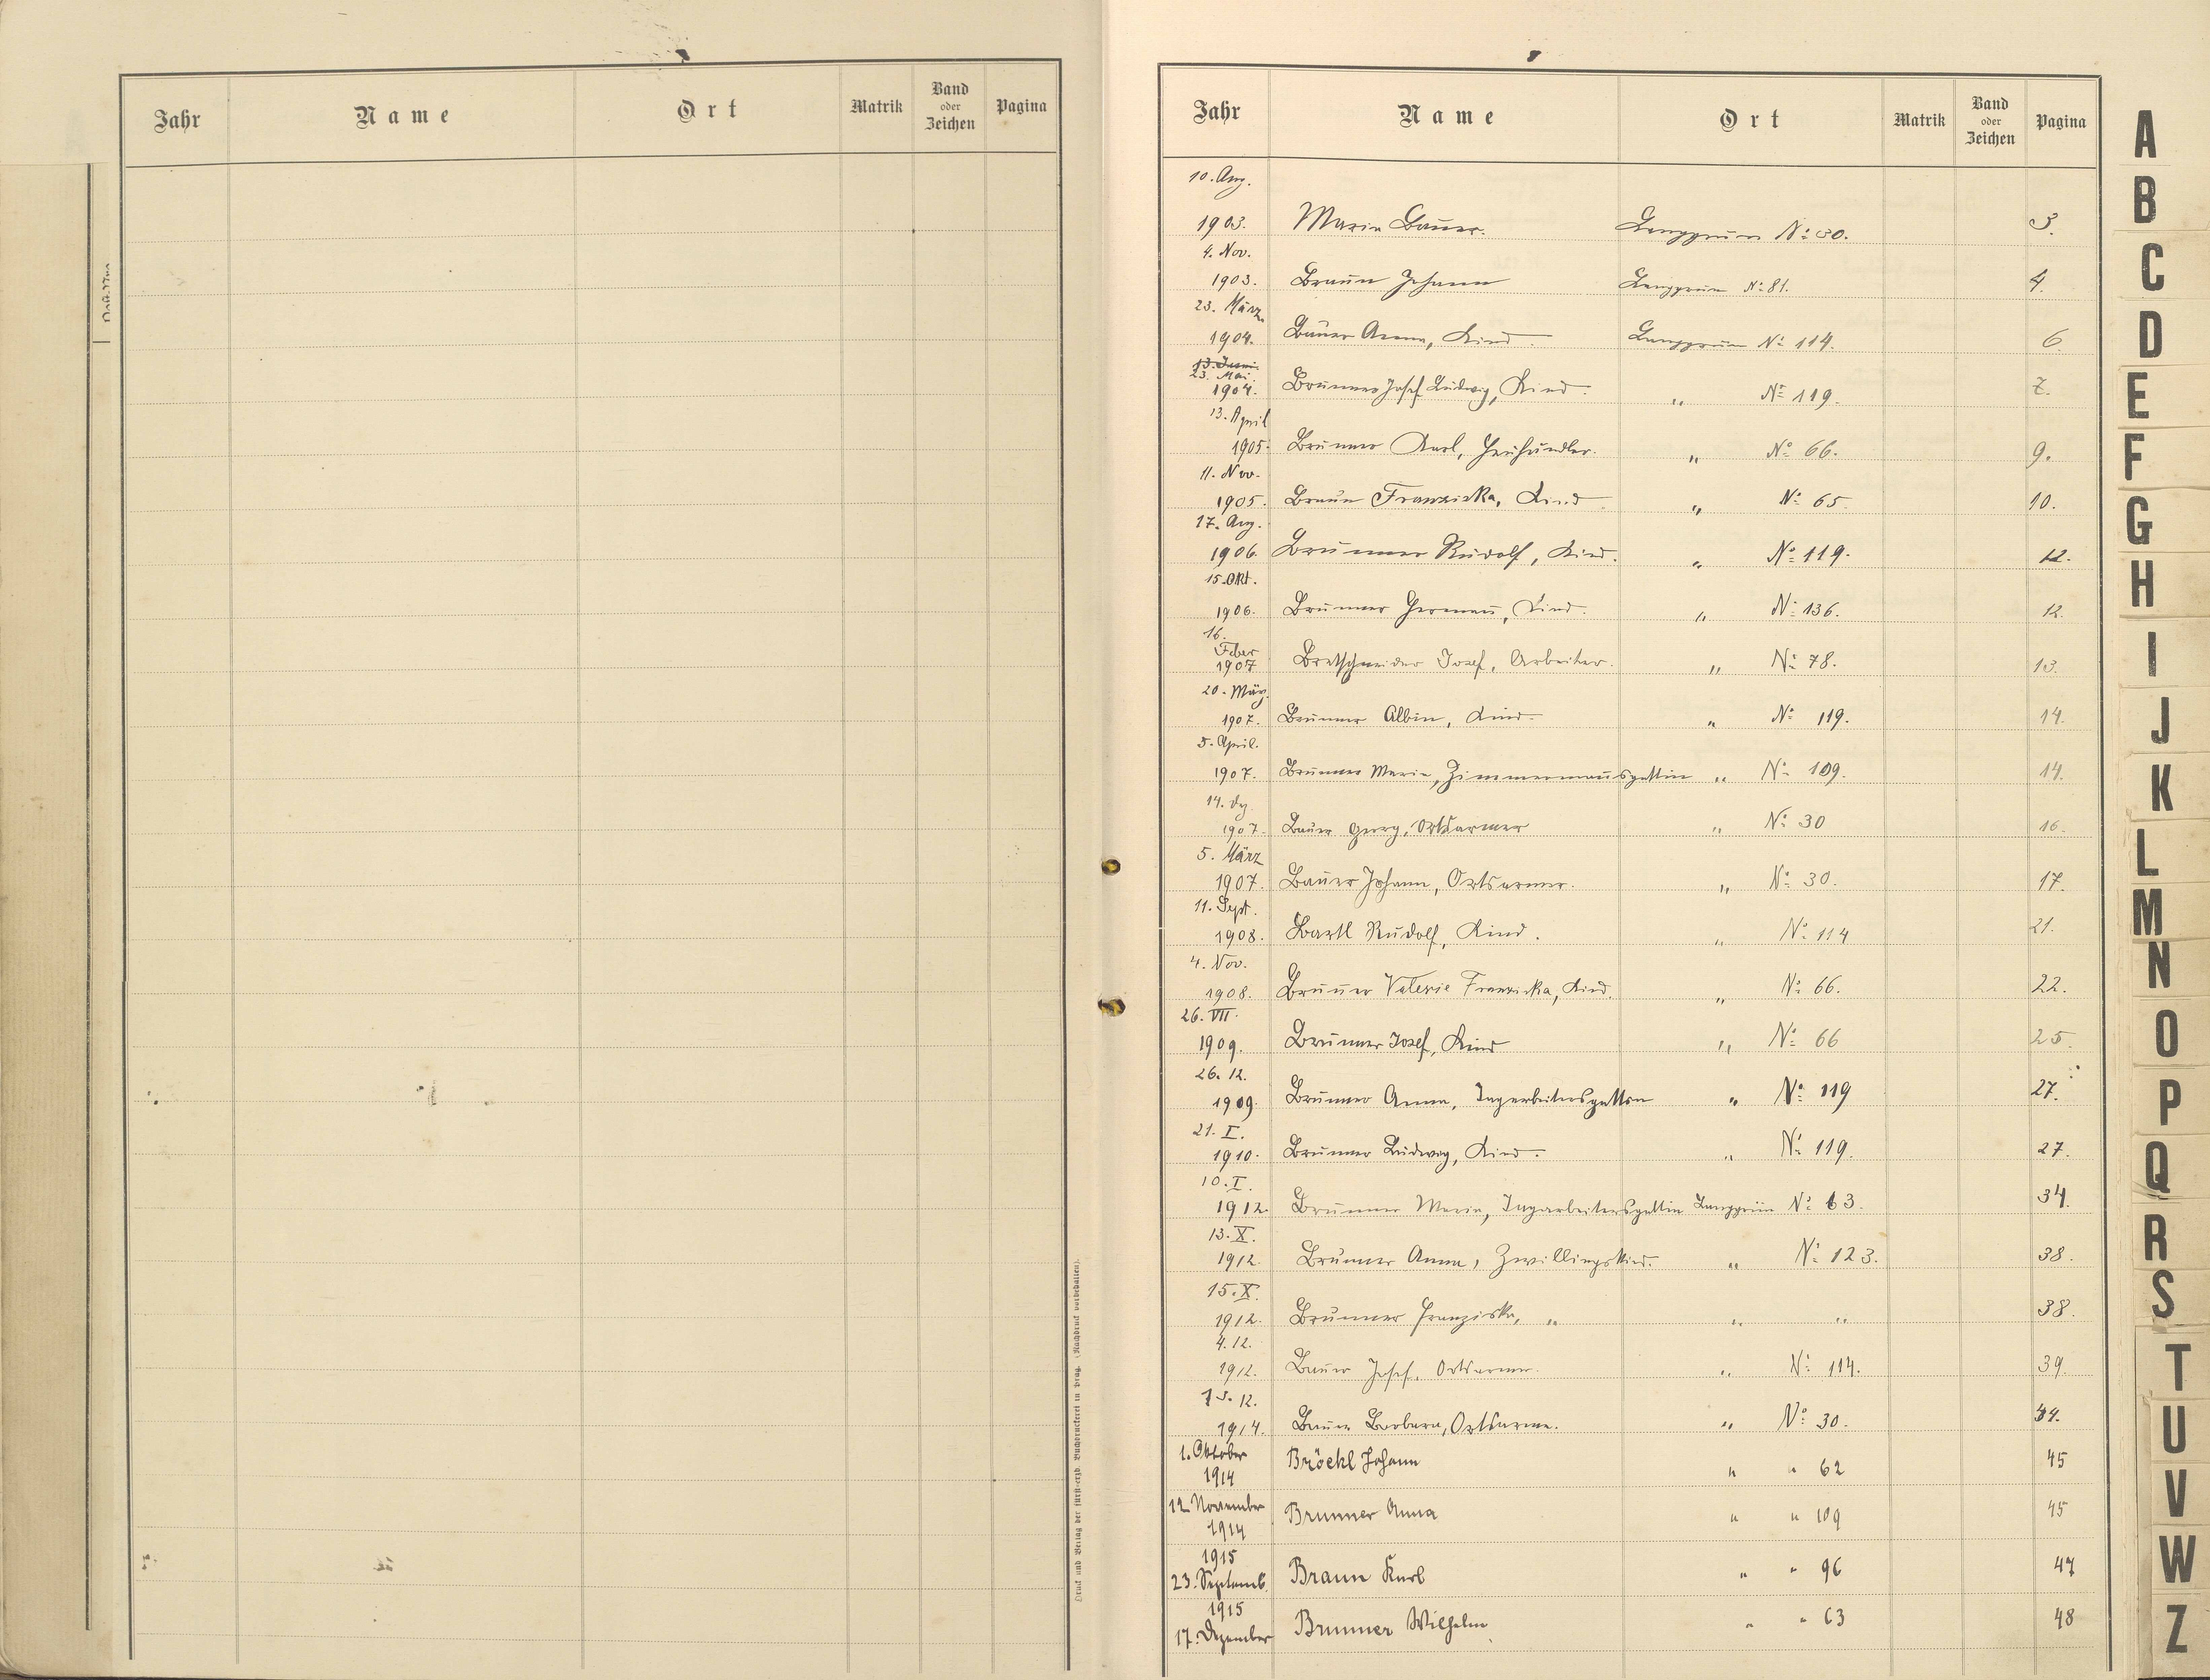 Jahr Name Ort Matrik Band oder Zeichen Pagina
Druck und Verlag der fürst-erzb. Buchdruckerei in Prag. (Nachdruck vorbehalten).
Jahr Name Ort Matrik Band oder Zeichen Pagina
10. Aug.
1903. Maria Bauer. Langgrün No 30. 3.
4. Nov.
1903. Braun Johann Langgrün No 81. 4.
23. März
1904. Bauer Anna, Kind. Langgrün No 114. 6
13. Juni
23. Mai
1904. Brunner Josef Ludwig, Kind. " No 119. 7.
13. April
1905. Brunner Karl, " No 66. 9.
11. Nov.
1905. Braun Franziska, Kind. " No 65 10.
17. Aug.
1906. Brunner Rudolf, Kind. " No 119. 12.
15. Okt.
1906. Brunner Herman, Kind. " No 136. 12.
16.
Feber
1907 Bretschneider Josef, Arbeiter. " No 78. 13.
20. März
1907. Brunner Albin, Kind. " No 119. 14.
5. April.
1907. Brunner Maria, Zimmermannsgattin " No 109. 14.
14.
1907. Bauer Georg, Ortsarmer " No 30 16.
5. März
1907. Bauer Johann, Ortsarmer. " No 30. 17.
11. Sept.
1908. Bartl Rudolf, Kind. " No 114 21.
4. Nov.
1908. Brunner Valerie Franziska, Kind. " No 66. 22.
26. VII.
1909. Brunner Josef, Kind " No 66 25.
26. 12.
1909. Brunner Anna, Tagarbeitersgattin " No 119 27.
21. I.
1910. Brunner Ludwig, Kind. " No 119. 27.
10. I.
1912 Brunner Maria, Tagarbeitersgattin Langgrün No 63. 34.
13. X.
1912. Brunner Anna, Zwillingskind. " No 123. 38.
15. X.
1912. Brunner Franziska, " " " 38.
4. 12.
1912. Bauer Josef, Ortsarmer. " No 114. 39.
12.
1914. Bauer Barbara, Ortsarme. " No 30. 44.
1. Oktober
1914 Bröckl Johann " " 62 45
12 November
1914 Brunner Anna " " 109 45
1915
23. Septemb. Braun Karl " " 96 47
1915
17. Dezember Brunner Wilhelm " " 63 48
A
B
C
D
E
F
G
H
I
J
K
L
M
N
O
P
Q
R
S
T
U
V
W
Z